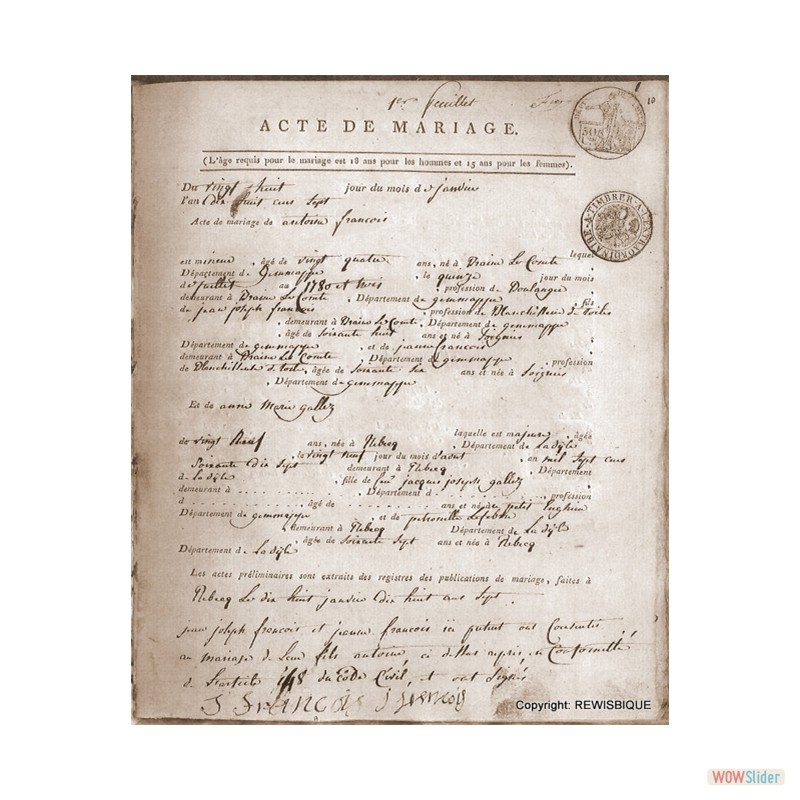 1er feuillet
10
ACTE DE MARIAGE.
(L'âge requis pour le mariage est 18 ans pour les hommes et 15 ans pour les femmes).
Du vingt huit jour du mois de janvier
l'an dix huit cens sept
Acte de mariage de antoine francois
lequel
est mineur , âgé de vingt quatre ans, né à Braine Le Comte
Département de Gemmappe , le quinze jour du mois
de juillet au 1780 et trois , profession de Boulanger
demeurant à Braine Le Comte , Département de gemmappe , fils
de jean joseph francois , profession de Blanchisseur de toiles
, demeurant à Braine Le Comte , Département de gemmappe
, âgé de soixante huit ans et né à Soignies
Département de gemmappe , et de jeanne francois
demeurant à Braine Le Comte , Département de gemmappe , profession
de Blanchisseuse de toile , âgée de soixante six ans et née à Soignies
, Département de gemmappe
Et de anne Marie gallez
laquelle est majeure , âgée
de vingt Neuf ans, née à Rebecq , Département de La dÿle
, le vingt neuf jour du mois d'aout , an mil sept cens
Soixante dix sept demeurant à Rebecq , Département
de La dÿle , fille de feu jacques joseph gallez
demeurant à , Département d , profession
d , âgé de ans et né à petit Enghien
Département de gemmappe , et de petronille Lefebvre
, demeurant à Rebecq , Département de La dÿle
, âgée de soixante sept ans et née à Rebecq
Département de La dÿle
Les actes préliminaires sont extraits des registres des publications de mariage, faites à
Rebecq Le dix huit janvier dix huit cens sept .
jean joseph francois et jeanne francois ici présent ont Consentis
au mariage de Leur fils antoine, ci dessus après, en Conformité
de L'article 148 du Code Civil, et ont signés
J Francois j francois
Copyright: REWISBIQUE
WOWSlider